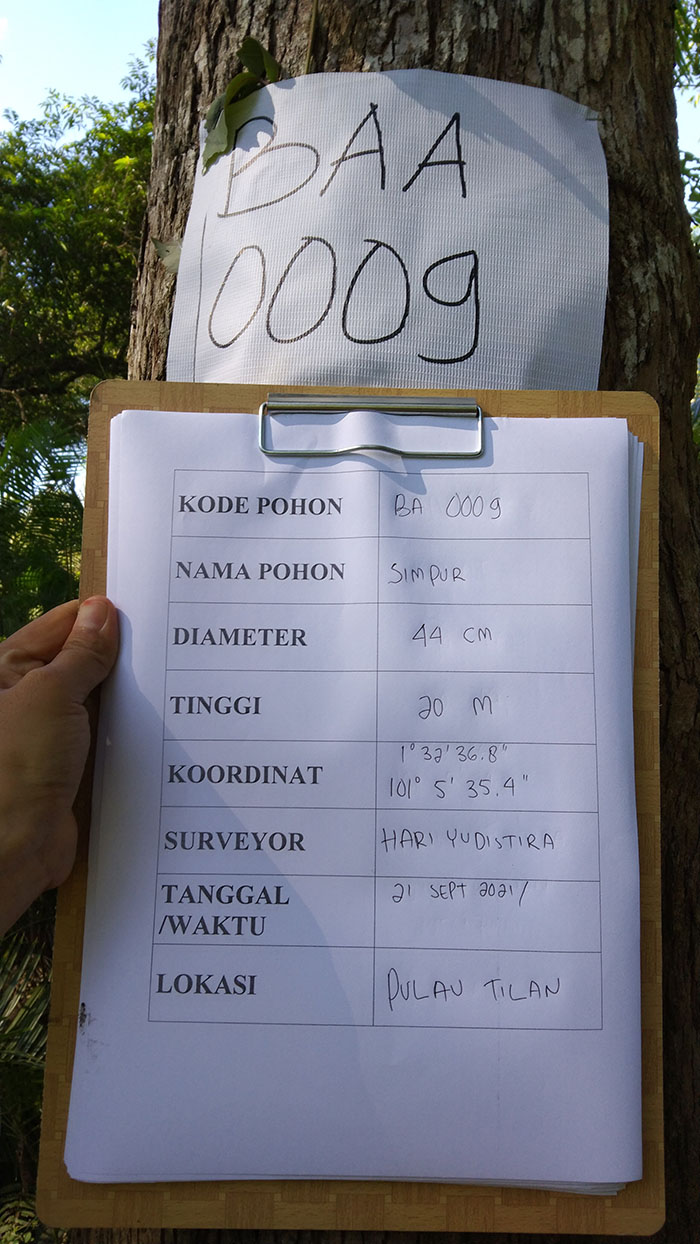 BAA
0009
KODE POHON BA 0009
NAMA POHON SIMPUR
DIAMETER 44 CM
TINGGI 20 M
KOORDINAT 1° 32' 36.8"
101° 5' 35.4"
SURVEYOR HARI YUDISTIRA
TANGGAL 21 SEPT 2021/
/WAKTU
LOKASI PULAU TILAN